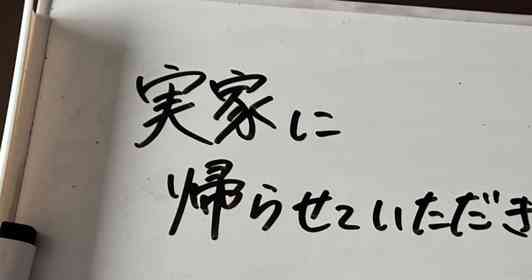 実家に
帰らせていただき